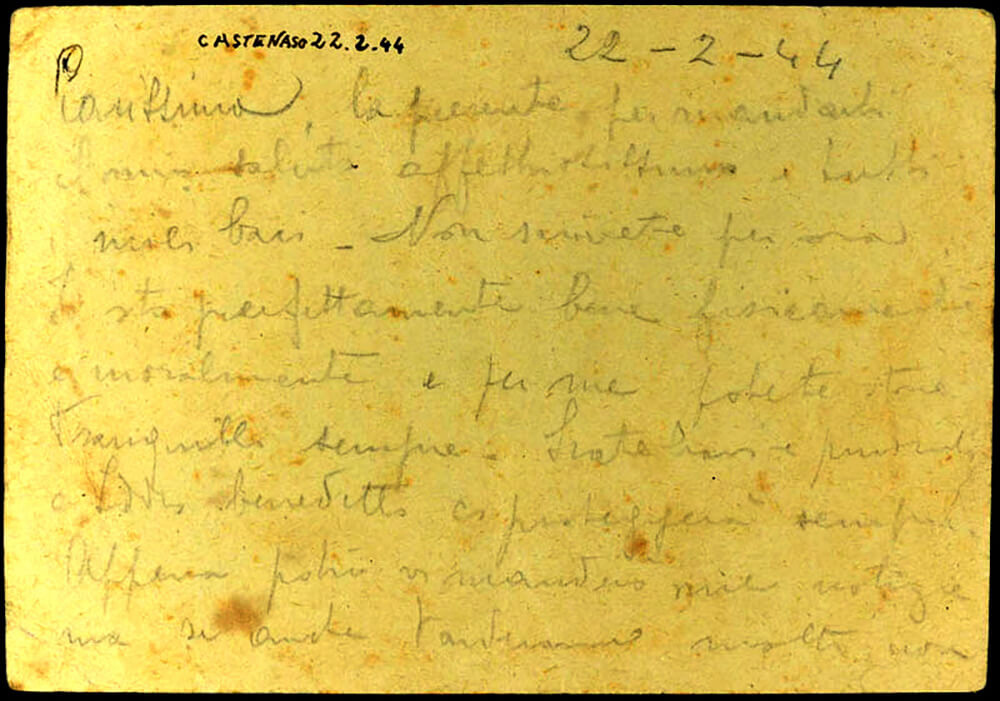 CASTENASO 22.2.44
22-2-44
Carissima, la presente per mandarti
il mio saluto affettuosissimo e tutti
i miei baci - Non scrivete per ora
Io sto perfettamente bene fisicamente
e moralmente e per me potete stare
tranquilli sempre - State bravi e prudenti
e Iddio benedetto ci proteggerà sempre.
Appena potrò vi manderò mie notizie
ma se anche tarderanno molto non